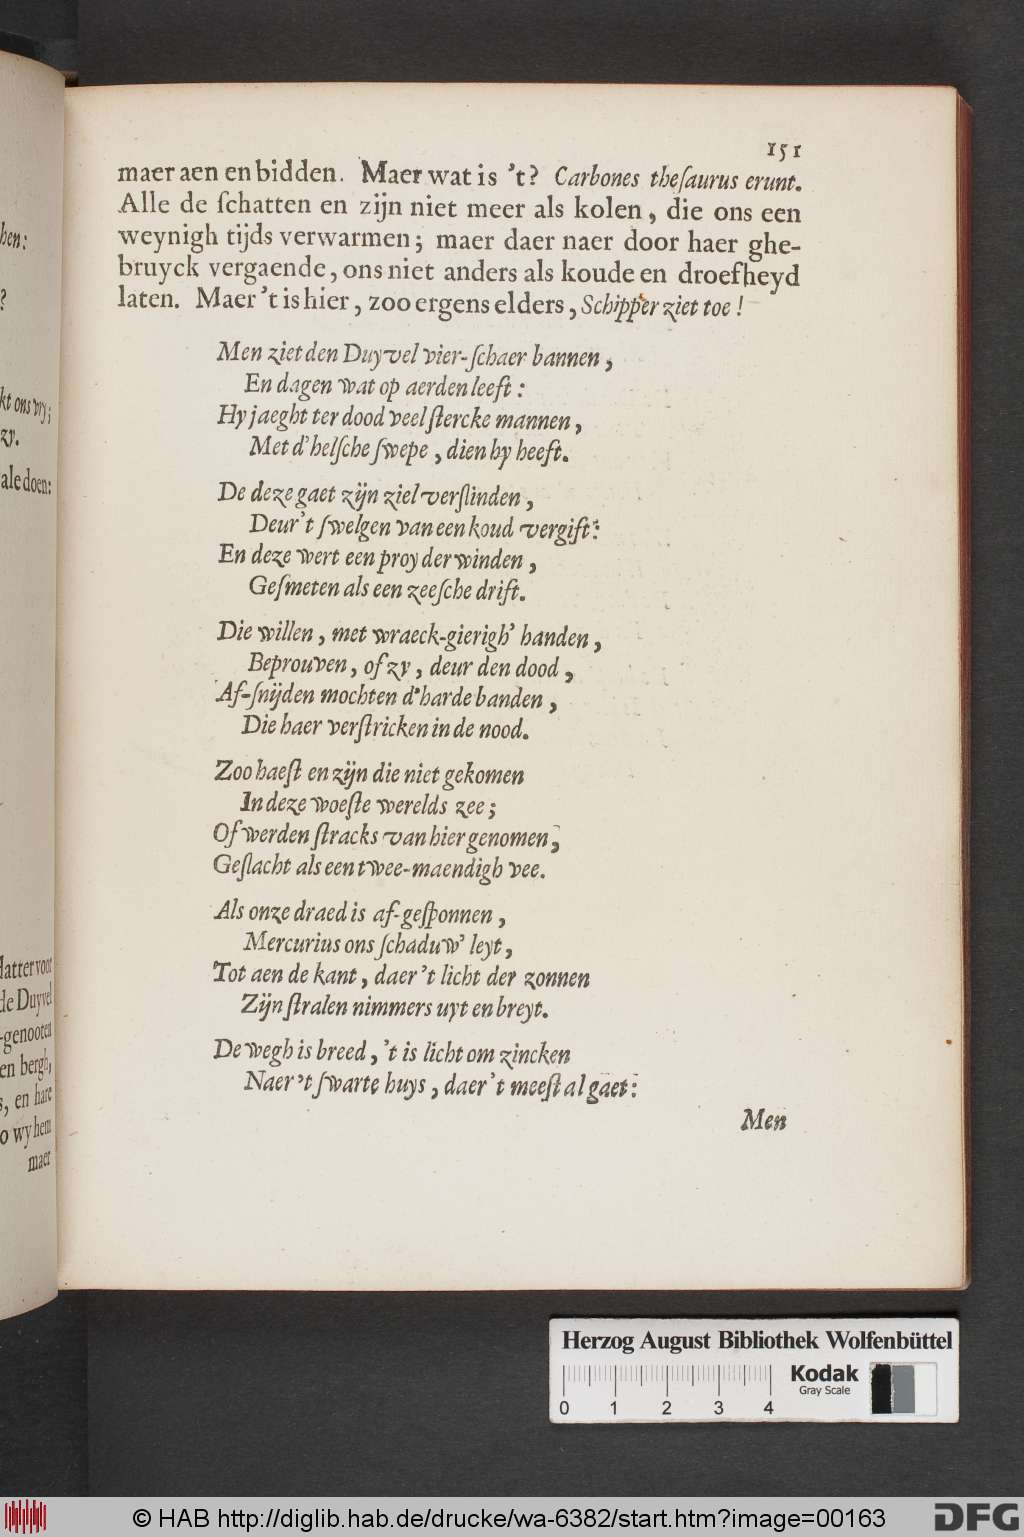 hen:
?
kt ons vry;
zy.
ale doen:
latter voor
de Duyvel
-genooten
en bergh,
s, en hare
o wy hem
maer
151
maer aen en bidden. Maer wat is 't? Carbones theſaurus erunt.
Alle de ſchatten en zijn niet meer als kolen, die ons een
weynigh tijds verwarmen; maer daer naer door haer ghe-
bruyck vergaende, ons niet anders als koude en droefheyd
laten. Maer 't is hier, zoo ergens elders, Schipper ziet toe!
Men ziet den Duyvel vier-ſchaer bannen,
En dagen wat op aerden leeft:
Hy jaeght ter dood veel ſtercke mannen,
Met d'helſche ſwepe, dien hy heeft.
De deze gaet zijn ziel verſlinden,
Deur 't ſwelgen van een koud vergift:
En deze wert een proy der winden,
Geſmeten als een zeeſche drift.
Die willen, met wraeck-gierigh' handen,
Beprouven, of zy, deur den dood,
Af-ſnijden mochten d'harde banden,
Die haer verſtricken in de nood.
Zoo haeſt en zijn die niet gekomen
In deze woeſte werelds zee;
Of werden ſtracks van hier genomen,
Geſlacht als een twee-maendigh vee.
Als onze draed is af-geſponnen,
Mercurius ons ſchaduw' leyt,
Tot aen de kant, daer 't licht der zonnen
Zijn ſtralen nimmers uyt en breyt.
De wegh is breed, 't is licht om zincken
Naer 't ſwarte huys, daer 't meeſt al gaet:
Men
Herzog August Bibliothek Wolfenbüttel
Kodak
Gray Scale
0 1 2 3 4
© HAB http://diglib.hab.de/drucke/wa-6382/start.htm?image=00163
DFG